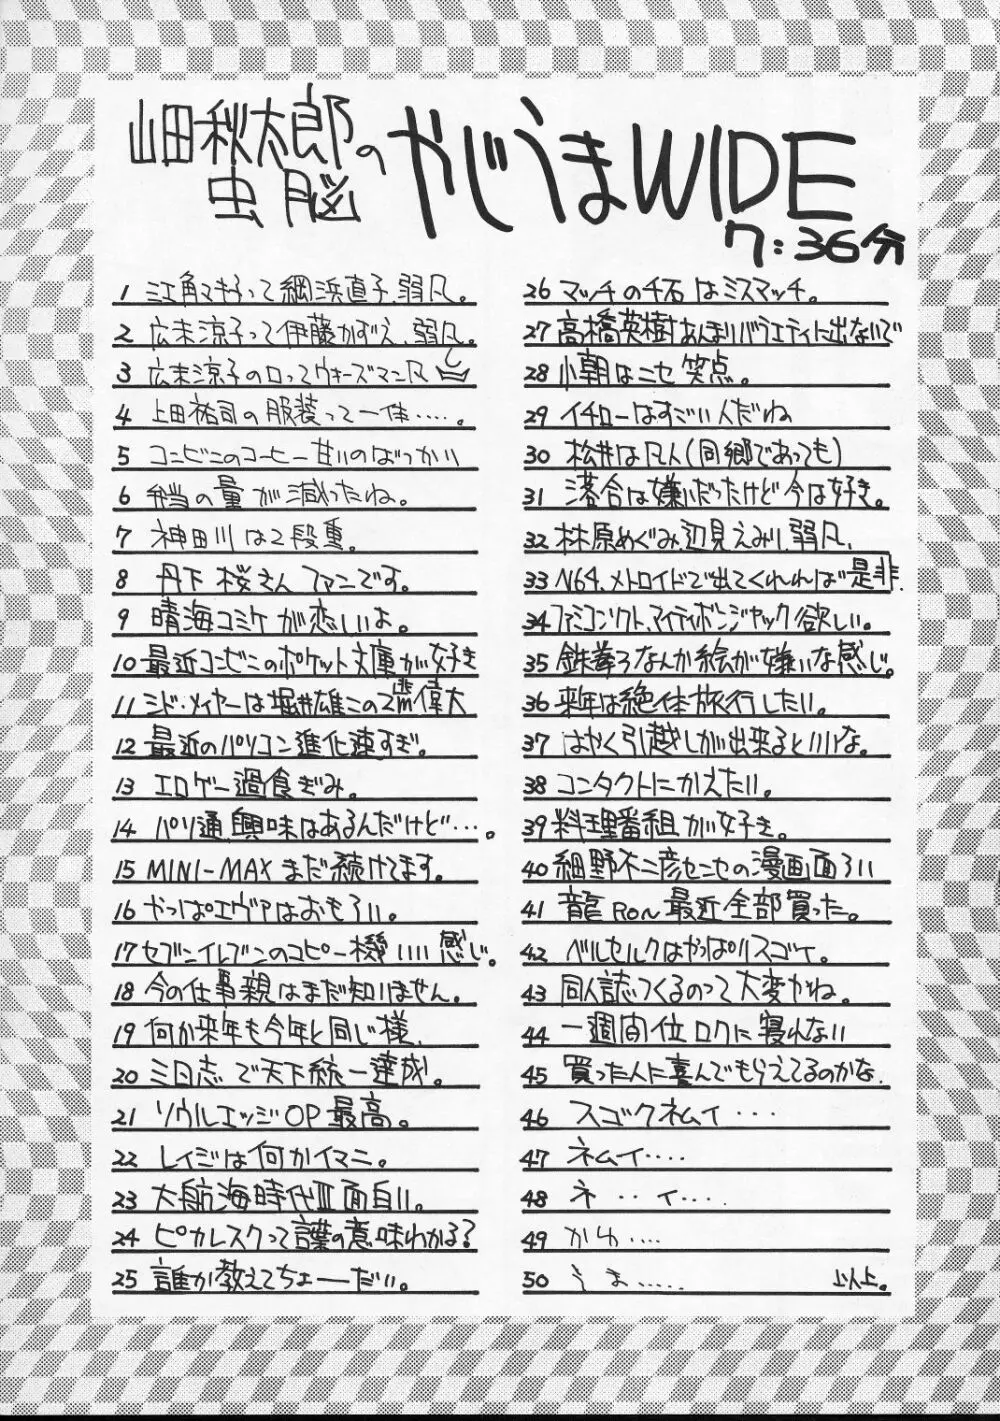 山田秋太郎の
虫脳
やじうまWIDE
7:36分
1 江角マキ子って綱浜直子、弱凡。
2 広末涼子って伊藤かずえ、弱凡。
3 広末涼子の口ってウォーズマン凡
4 上田祐司の服装って一体‥‥。
5 コンビニのコーヒー甘いのばっかい
6 弁当の量が減ったね。
7 神田川は2段重。
8 丹下桜さんファンです。
9 晴海コミケが恋しいよ。
10 最近コンビニのポケット文庫が好き
11 シド・メイヤーは堀井雄二の2倍偉大
12 最近のパソコン進化速すぎ。
13 エロゲー過食ぎみ。
14 パソ通興味はあるんだけど‥‥。
15 MINI-MAXまだ続けてます。
16 やっぱエヴァはおもろい。
17 セブンイレブンのコピー機いい感じ。
18 今の仕事親はまだ知りません。
19 何か来年も今年と同じ様、
20 三日志で天下統一達成。
21 ソウルエッジOP最高。
22 レイジは何かイマニ。
23 大航海時代Ⅲ面白い。
24 ピカレスクって言葉の意味わかる?
25 誰か教えてちょーだい。
26 マッチの千石はミスマッチ。
27 高橋英樹あんまりバラエティに出ないで
28 小朝はニセ笑点。
29 イチローはすごい人だね
30 松井は凡人(同郷であっても)
31 落合は嫌いだったけど今は好き。
32 林原めぐみ、辺見えみり、弱凡、
33 N64、メトロイドで出てくれれば是非.
34 ファミコンソフト、マイティボンジャック欲しい。
35 鉄拳3なんか絵が嫌いな感じ。
36 来年は絶体旅行したい。
37 はやく引越しが出来るといいな。
38 コンタクトにかえたい。
39 料理番組が好き。
40 細野不二彦センセの漫画面ろい
41 龍RON最近全部買った。
42 ベルセルクはやっぱりスゴイ。
43 同人誌つくるのって大変かね。
44 一週間位ロクに寝れない
45 買った人に喜んでもらえてるのかな.
46 スゴクネムイ‥‥
47 ネムイ‥‥
48 ネ‥イ‥‥
49 かゆ‥‥
50 うま‥‥‥ 以上。